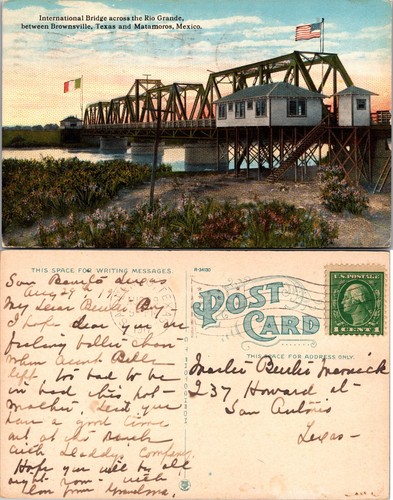 International Bridge across the Rio Grande,
between Brownsville, Texas and Matamoros, Mexico.
THIS SPACE FOR WRITING MESSAGES.
San Benito Texas
Aug 29
My Dear Bentley Boy-
I hope dear you are
feeling better than
when Aunt Belle
left too bad to be
in bed this hot
weather, did you
have a good time
out at the Ranch
with Daddys Company
Hope you will be all
right soon - with
love from Grandma,
R-34192
POST
CARD
THIS SPACE FOR ADDRESS ONLY.
U.S. POSTAGE
1 CENT 1
Master
237 Howard st-
San Antonio
Texas-